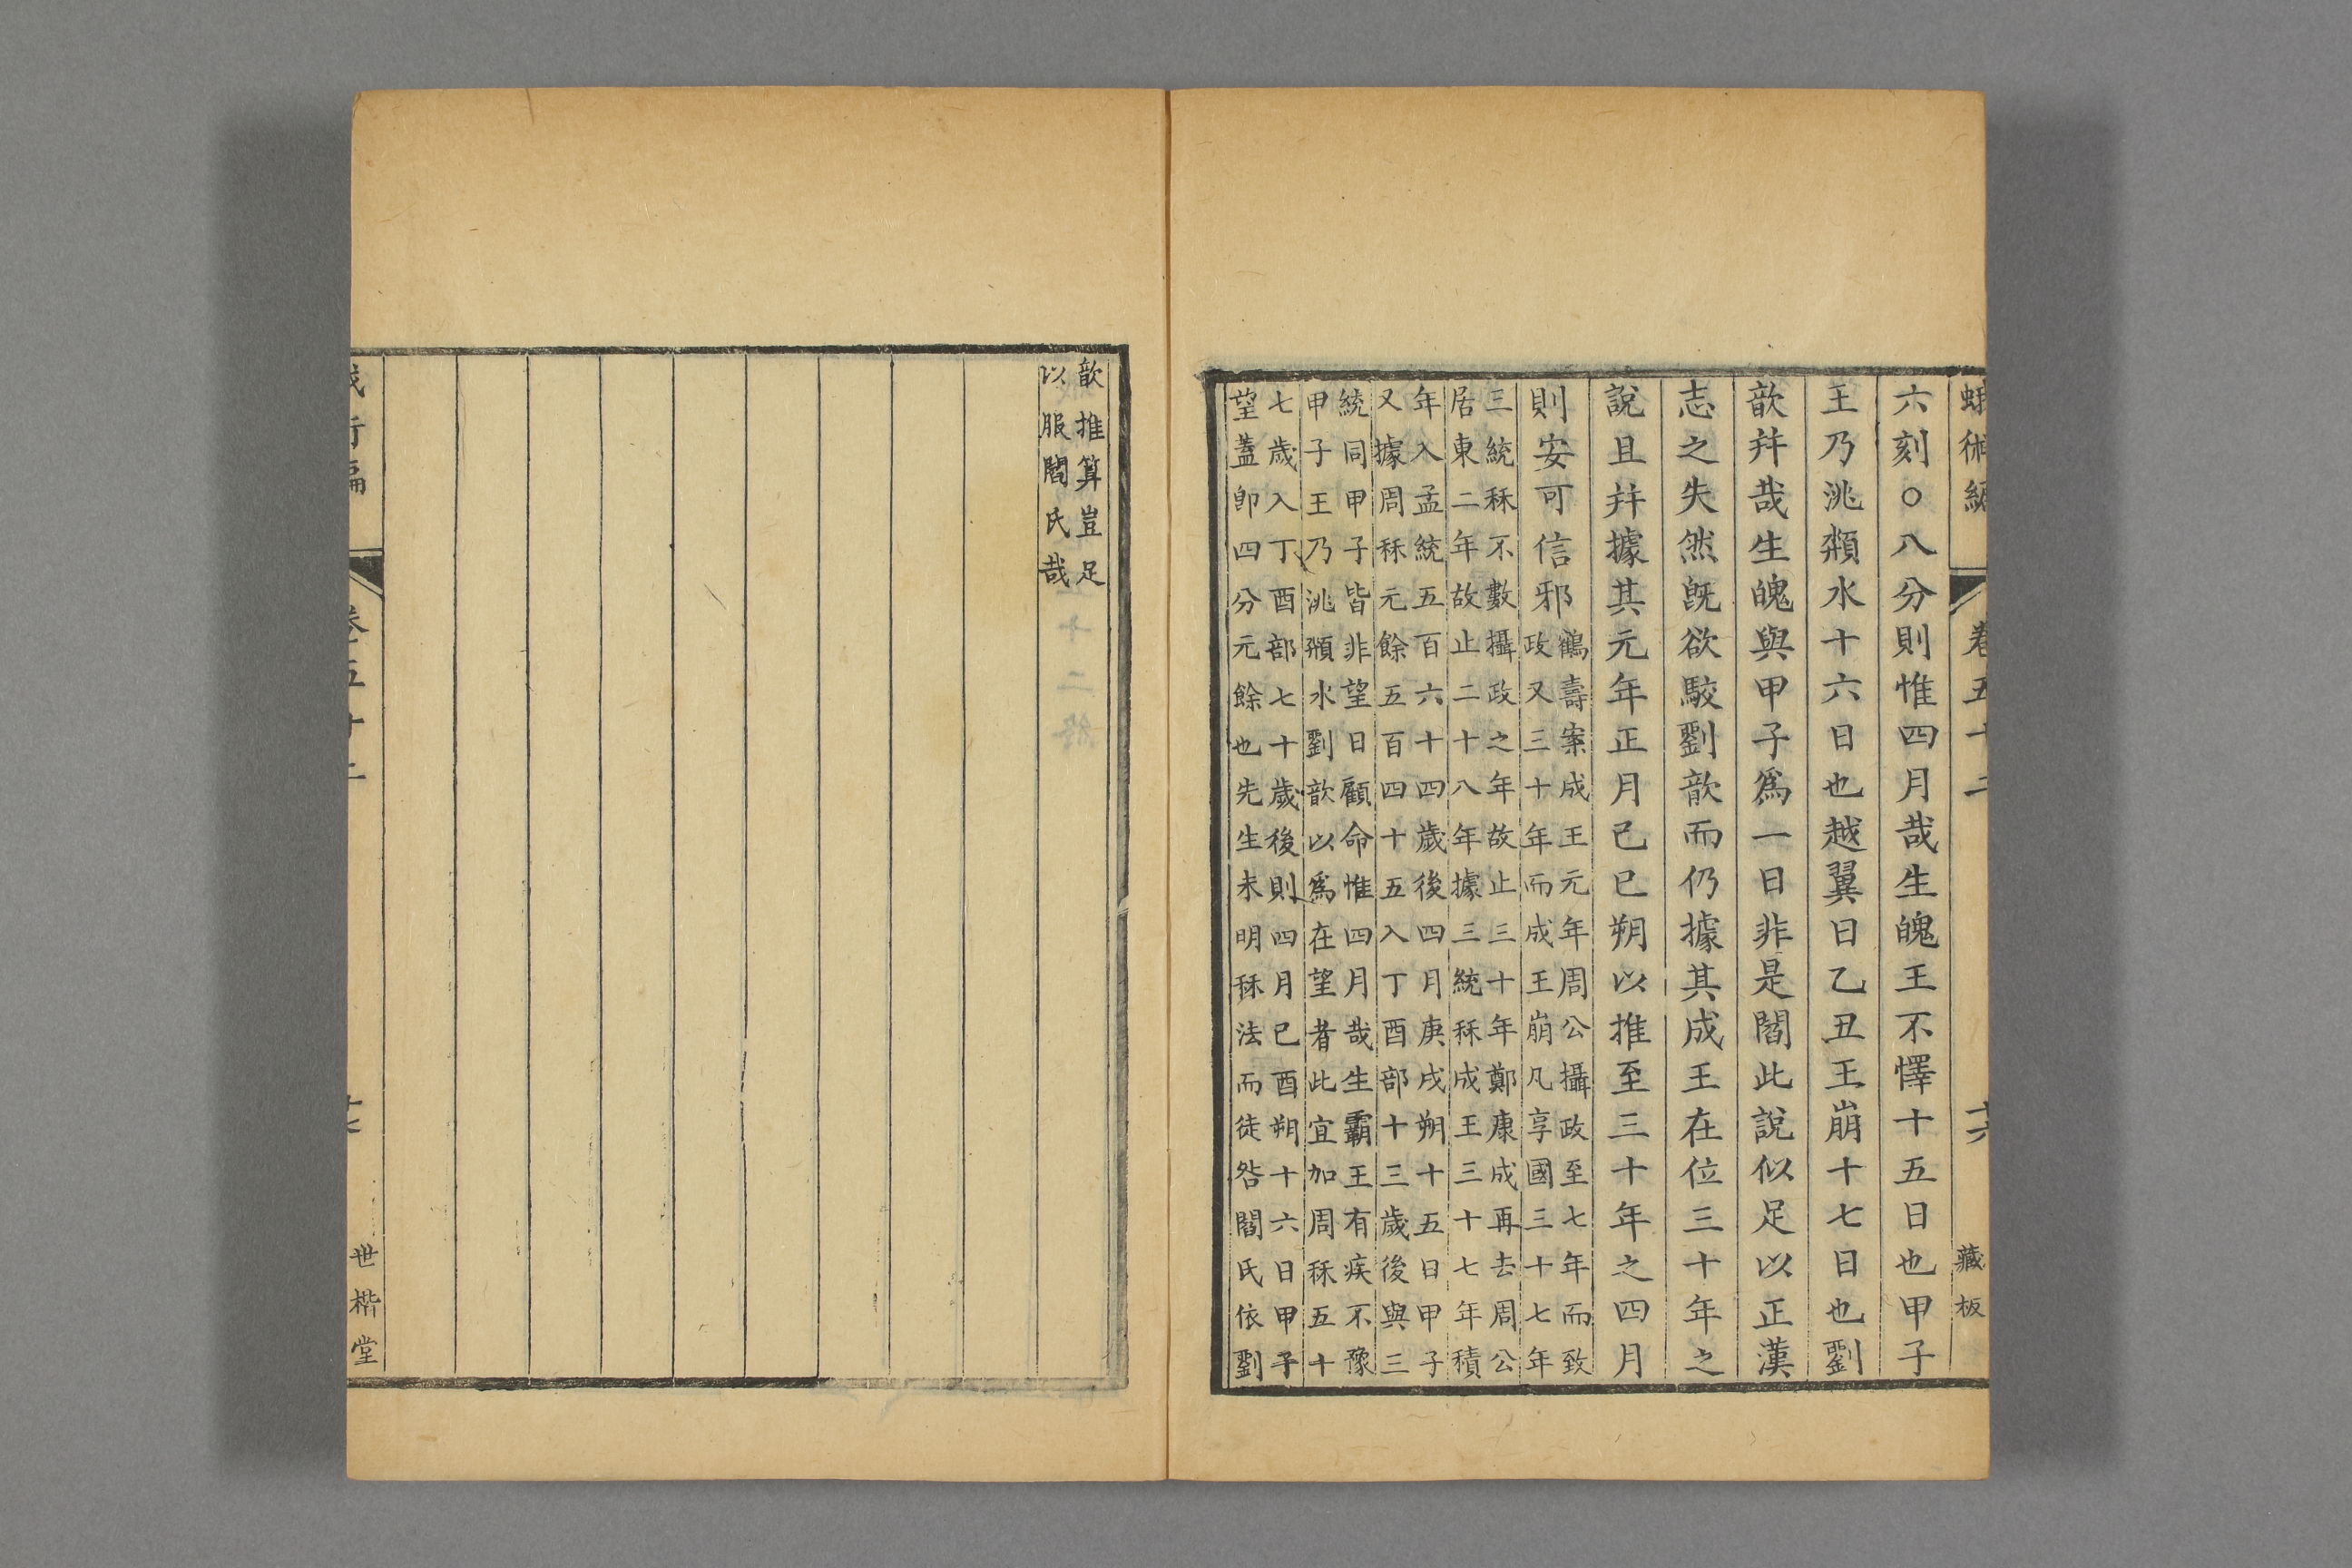 蛾術編 卷五十二 十六 藏板
六刻○八分則惟四月哉生魄王不懌十五日也甲子
王乃洮頮水十六日也越翼日乙丑王崩十七日也劉
歆幷哉生魄與甲子爲一日非是閻此說似足以正漢
志之失然旣欲駮劉歆而仍據其成王在位三十年之
說且幷據其元年正月己巳朔以推至三十年之四月
則安可信邪
鶴壽案成王元年周公攝政至七年而致
政又三十年而成王崩凡享國三十七年
三統秝不數攝政之年故止三十年鄭康成再去周公
居東二年故止二十八年據三統秝成王三十七年積
年入孟統五百六十四歲後四月庚戌朔十五日甲子
又據周秝元餘五百四十五入丁酉部十三歲後與三
統同甲子皆非望日顧命惟四月哉生霸王有疾不豫
甲子王乃洮頮水劉歆以爲在望者此宜加周秝五十
七歲入丁酉部七十歲後則四月己酉朔十六日甲子
望蓋卽四分元餘也先生未明秝法而徒咎閻氏依劉
歆推算豈足
以服閻氏哉
蛾術編 卷五十二 十七 世楷堂